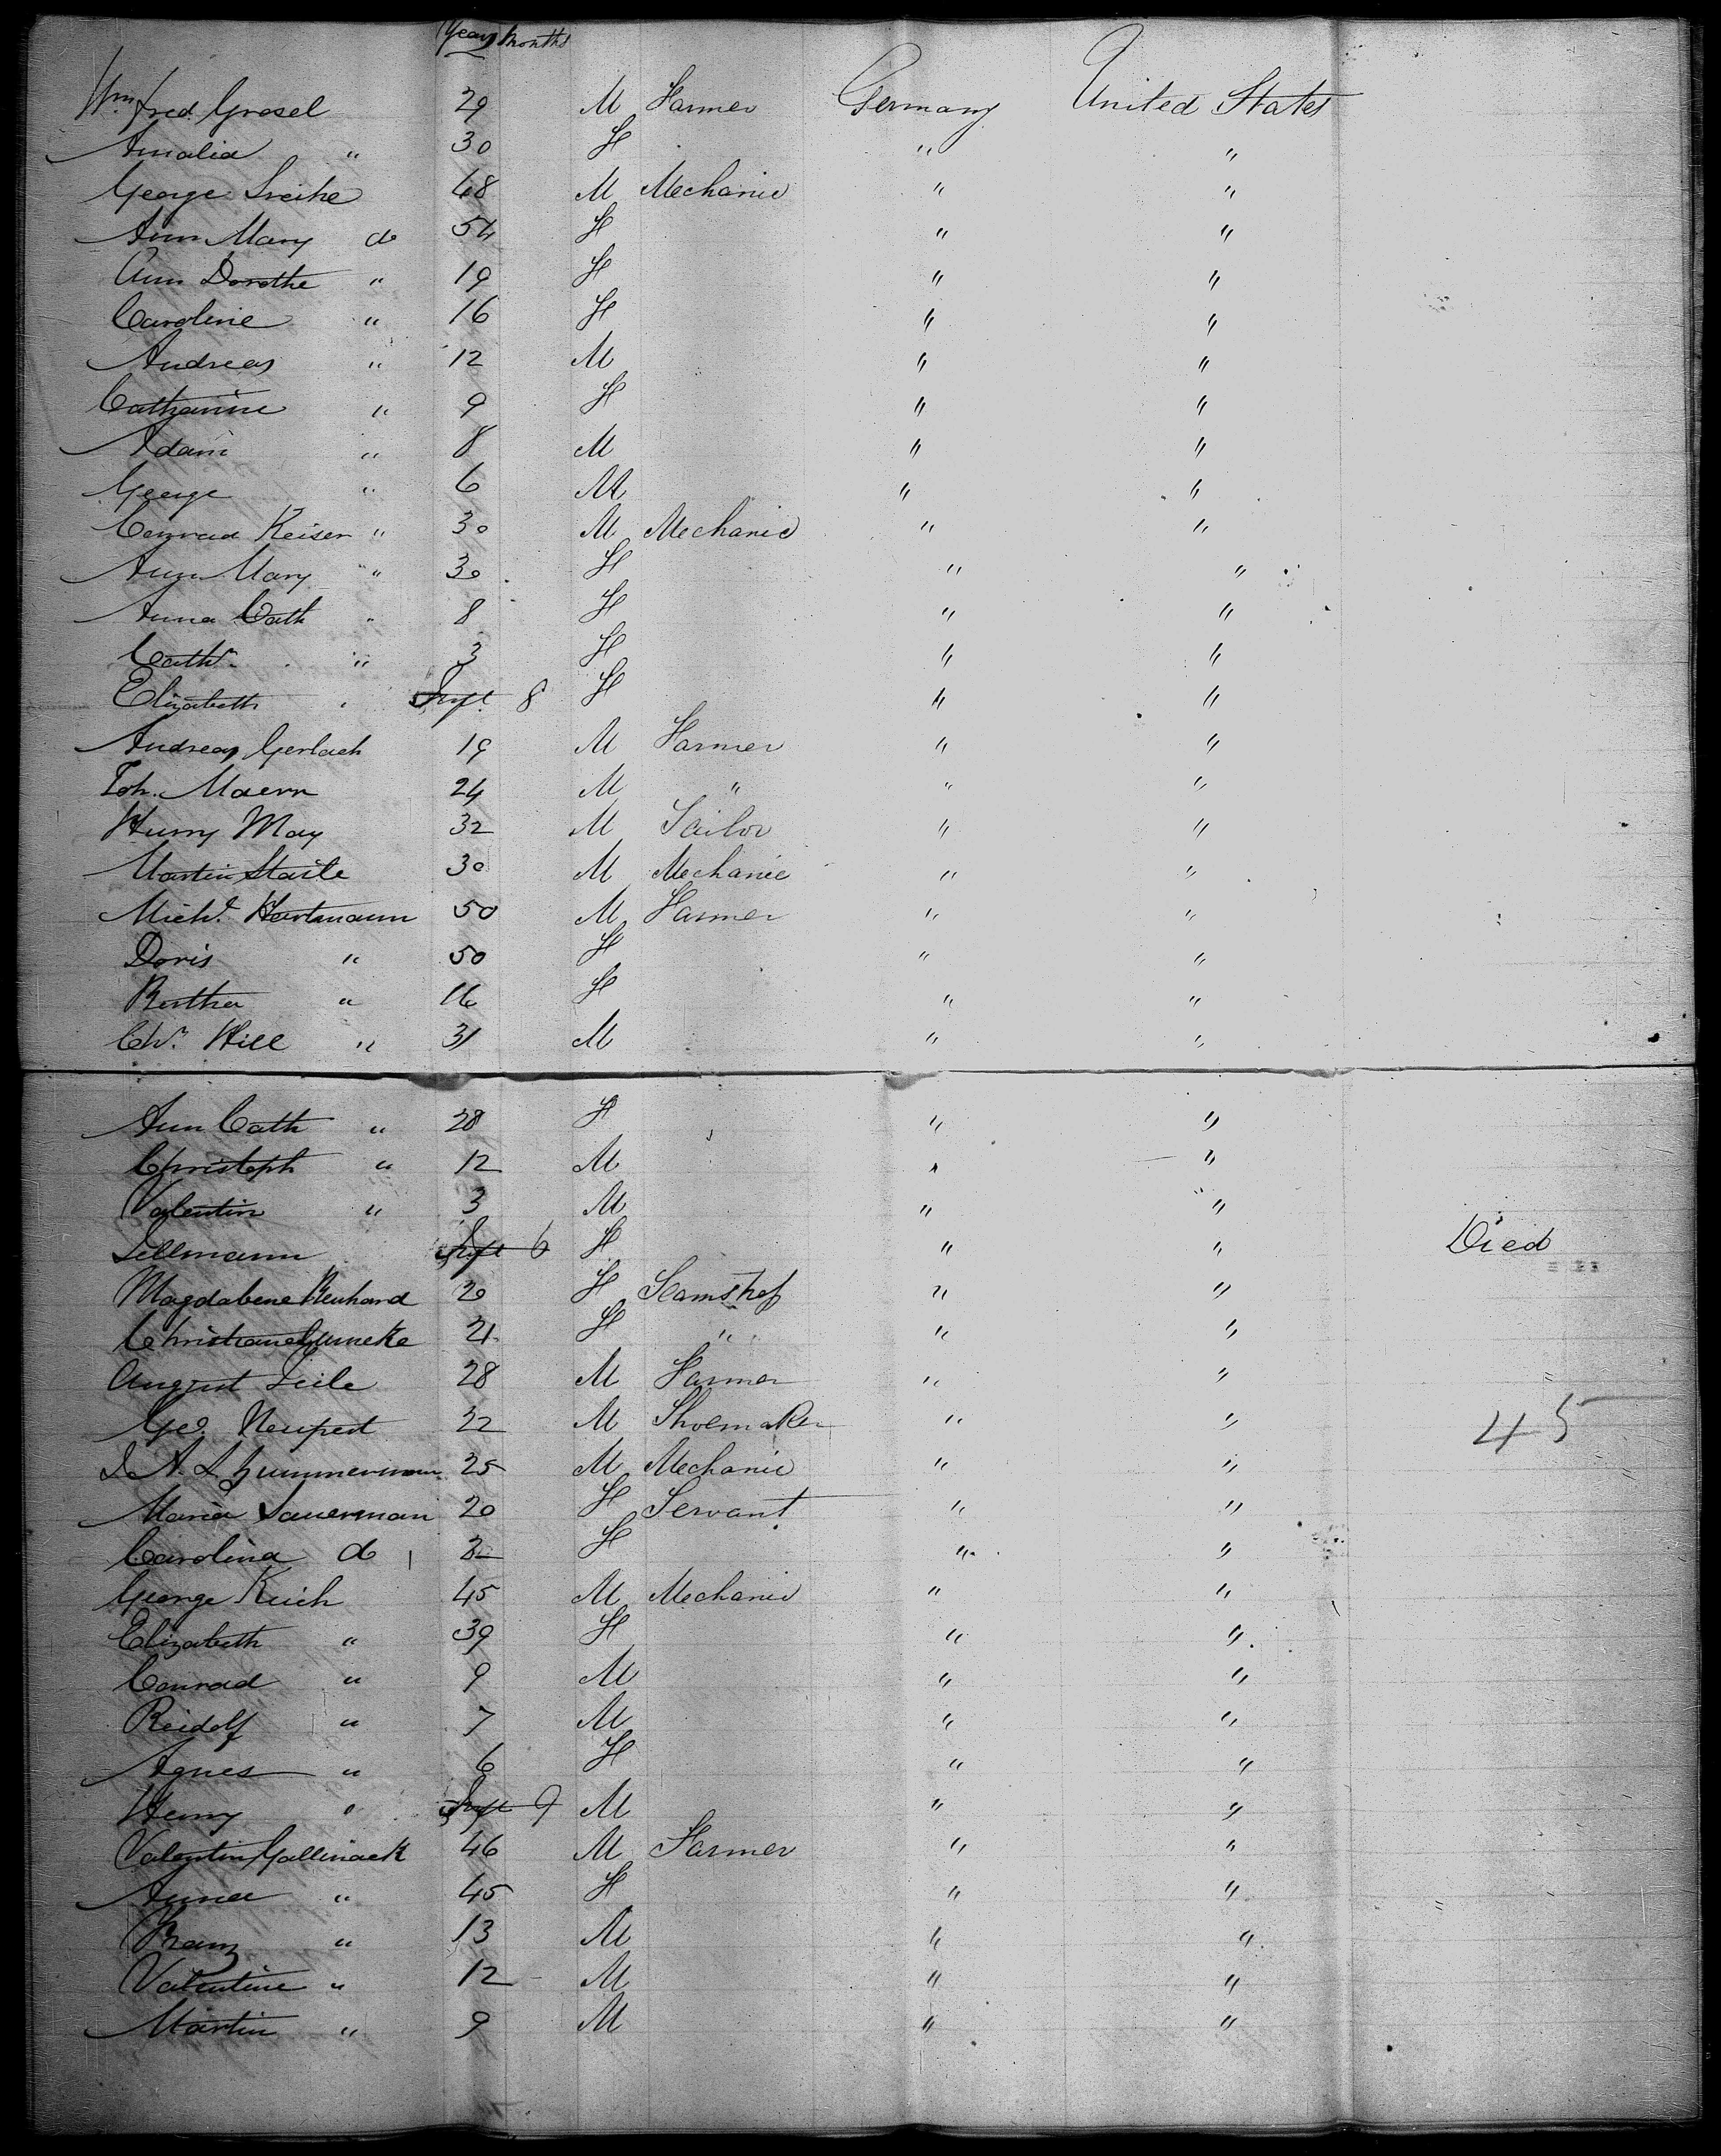 Years Months
Wm. fred. Grosel 29 M Farmer Germany United States
Amalia " 30 F " "
George Sreihe 48 M Mechanic " "
Ann Mary do 54 F " "
Ann Dorothe " 19 F " "
Caroline " 16 F " "
Andreas " 12 M " "
Catharine " 9 F " "
Adam " 8 M " "
George " 6 M " "
Conrad Keiser " 30 M Mechanic " "
Ann Mary " 30 F " "
Anna Cath " 8 F " "
Cathr. " 3 F " "
Elizabeth " 8 F " "
Andreas Gerlach 19 M Farmer " "
Joh. Maerr 24 M " " "
Henry May 32 M Tailor " "
Martin Staile 30 M Mechanic " "
Michl. Hartmann 50 M Farmer " "
Doris " 50 F " "
Bertha " 16 F " "
Chr. Hill " 31 M " "
Ann Cath " 28 F " "
Christoph " 12 M " "
Valentin " 3 M " "
Sellmann 6 F " " Died
Magdalene Reuhard 20 F Seamstress " "
Christiane Gumeke 21 F " " "
August Zeile 28 M Farmer " "
Geo. Neupert 22 M Shoemaker " " 45
Zummerman 25 M Mechanic " "
Maria Sauerman 20 F Servant " "
Carolina do F " "
George Reich 45 M Mechanic " "
Elizabeth " 39 F " "
Conrad " 9 M " "
Reidolf " 7 M " "
Agnes " 6 F " "
Henry " 9 M " "
Valentin Gallinack 46 M Farmer " "
Anna " 45 F " "
Franz " 13 M " "
Valentine " 12 M " "
Martin " 9 M " "